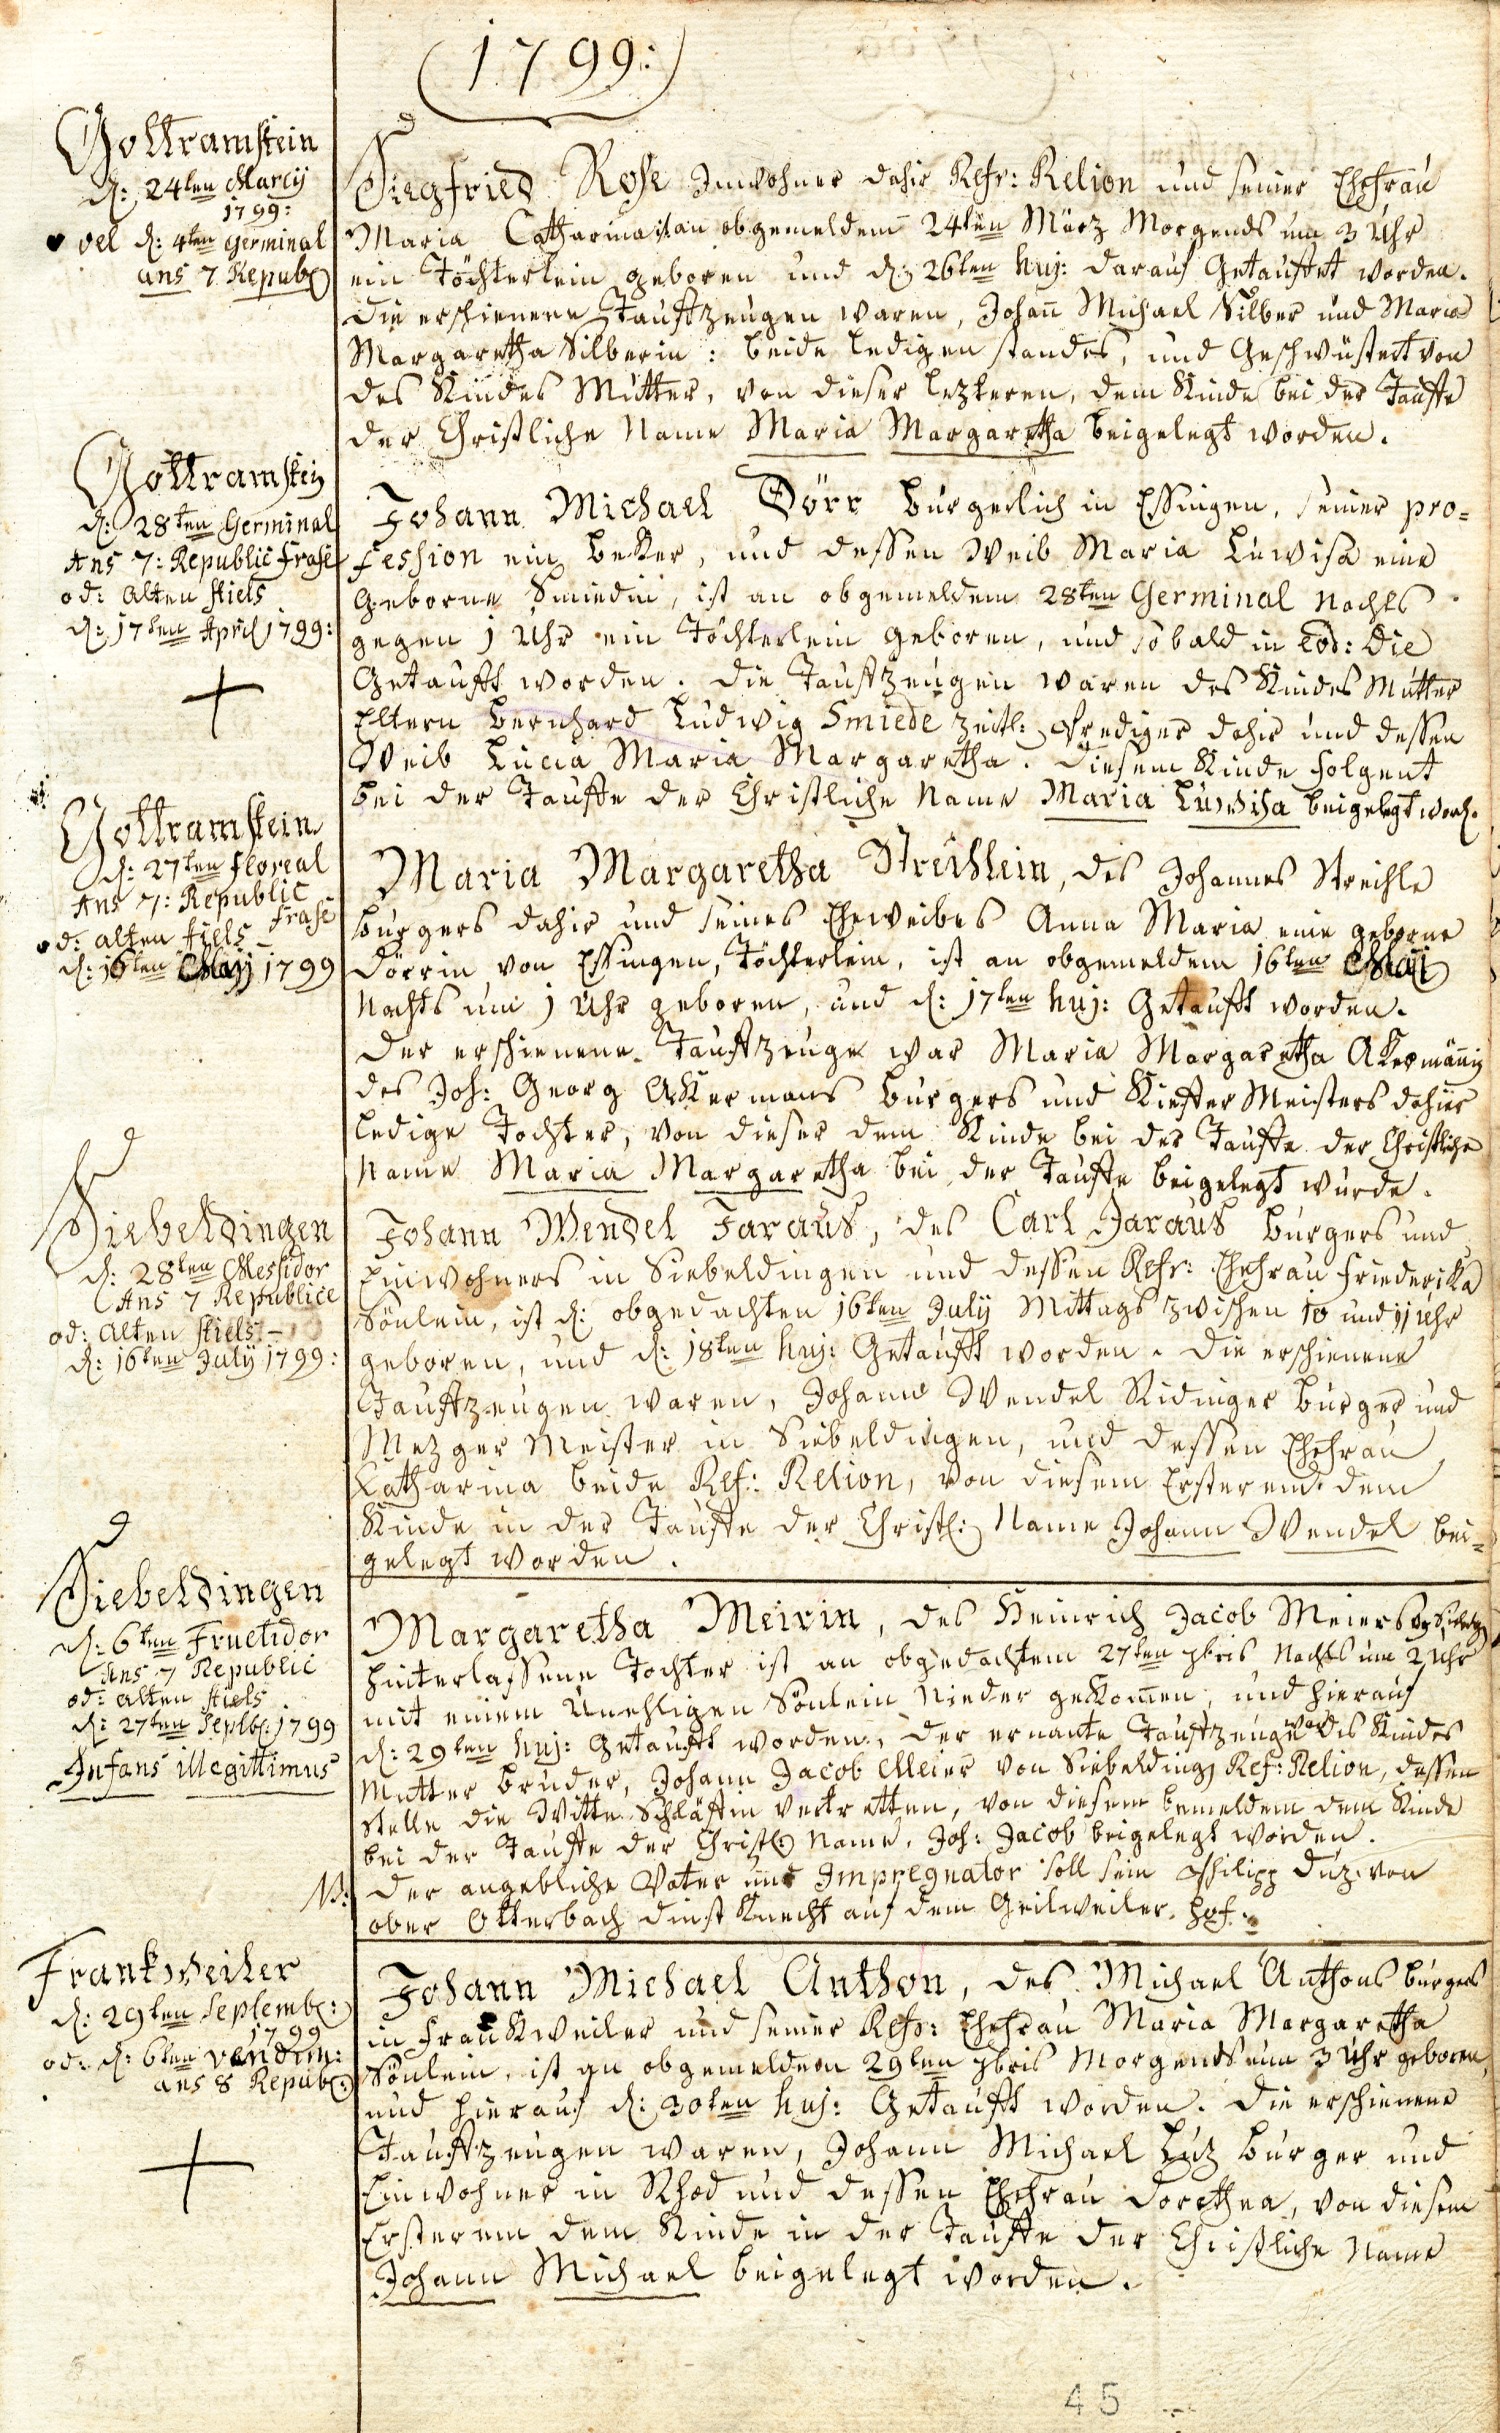 1799:
Gottramstein
d: 24ten Marcij
1799:
vel d: 4ten Germinal
ans 7 Republ
Siegfried Rose Innwohner dahir Refr: Relion und seiner Ehefrau
Maria Catharina ist an obgemeldem 24ten März Morgends um 3 Uhr
ein Töchterlein geboren und d: 26ten huj: darauf Getauffet worden.
Die erschienene Tauffzeugen waren, Johañ Michael Silber und Maria
Margaretha Silberin: beide ledigen standes, und Geschwüstert von
des Kindes Mutter, von dieser lezteren, dem Kinde bei der Tauffe
der Christliche Name Maria Margaretha beigelegt worden.
Gottramstein
d: 28ten Germinal
Ans 7: Republic Frase
od: alten stiels
d: 17ten April 1799:
Johann Michael Dörr bürgerlich in Essingen, seiner pro=
fession ein beker, und dessen Weib Maria Luwisa eine
Geborne Smiedin, ist an obgemeldem 28ten Germinal Nachts
gegen 1 Uhr ein Töchterlein geboren, und sobald in eod: die
Getaufft worden. Die Tauffzeugen waren des Kindes Mutter
Eltern Bernhard Ludwig Smiede zeitl: Prediger dahir und dessen
Weib Lucia Maria Margaretha. Diesem Kinde folgent
bei der Tauffe der Christliche Name Maria Luwisa beigelegt word.
Gottramstein
d: 27ten Floreal
Ans 7: Republic
Frase
od: alten stiels
d: 16ten Maji 1799
Maria Margaretha Streihlein, des Johannes Streihle
burgers dahir und seines Eheweibes Anna Maria eine geborne
Dörrin von Essingen, Töchterlein, ist an obgemeldem 16ten Maji
Nachts um 1 Uhr geboren, und d: 17ten huj: Getaufft worden.
Der erschienene Tauffzeuge war Maria Margaretha Akermäñin
des Joh: Georg Akermans burgers und Kieffer Meisters dahier
ledige Tochter, von dieser dem Kinde bei der Tauffe der Christliche
Name Maria Margaretha bei der Tauffe beigelegt wurde.
Siebeldingen
d: 28ten Messidor
Ans 7 Republice
od: alten stiels
d: 16ten July 1799:
Johann Wendel Faraus, des Carl Faraus burgers und
Einwohners in Siebeldingen und dessen Refr: Ehefrau Friederika
Sönlein, ist d: obgedachten 16ten July Mittags zwischen 10 und 11 Uhr
geboren, und d: 18ten huj: Getaufft worden. Die erschienene
Tauffzeugen waren, Johann Wendel Ridinger burger und
Mezger Meister in Siebeldingen, und dessen Ehefrau
Catharina beide Ref: Relion, von diesem Ersterem dem
Kinde in der Tauffe der Christl: Name Johann Wendel bei=
gelegt worden.
Siebeldingen
d: 6ten Fructidor
Ans 7 Republic
od: alten stiels
d: 27ten Septb: 1799
Infans illegittimus
Margaretha Meirin, des Heinrich Jacob Meiers
hinterlassene Tochter ist an obgedachtem 27ten 7bris Nachts um 2 Uhr
mit einem Unehligen Sönlein Nieder gekom̄en, und hierauf
d: 29ten huj: Getaufft worden, der ernante Tauffzeuge war des Kindes
Mutter bruder, Johann Jacob Meier von Siebelding Ref: Relion, dessen
stelle die Witte Schläffin vertretten, von diesem bemeldem dem Kinde
bei der Tauffe der Christl: Name, Joh: Jacob beigelegt worden.
NB: Der angebliche Vater und Impregnator soll sein Philipp Duz von
ober Otterbach dinst Knecht auf dem Geilweiler. hof.
Frankweiler
d: 29ten Septemb:
1799
od: d: 6ten vendem:
ans 8 Republ:
Johann Michael Anthon, des Michael Anthons burgers
in Frankweiler und seiner Refr: Ehefrau Maria Margaretha
Sönlein, ist an obgemeldem 29ten 7bris Morgends um 3 Uhr geboren,
und hierauf d: 30ten huj: Getaufft worden. Die erschienene
Tauffzeugen waren, Johann Michael Luz burger und
Einwohner in Rhod und dessen Ehefrau Dorethea, von diesem
Ersterem dem Kinde in der Tauffe der Christliche Name
Johann Michael beigelegt worden.
45